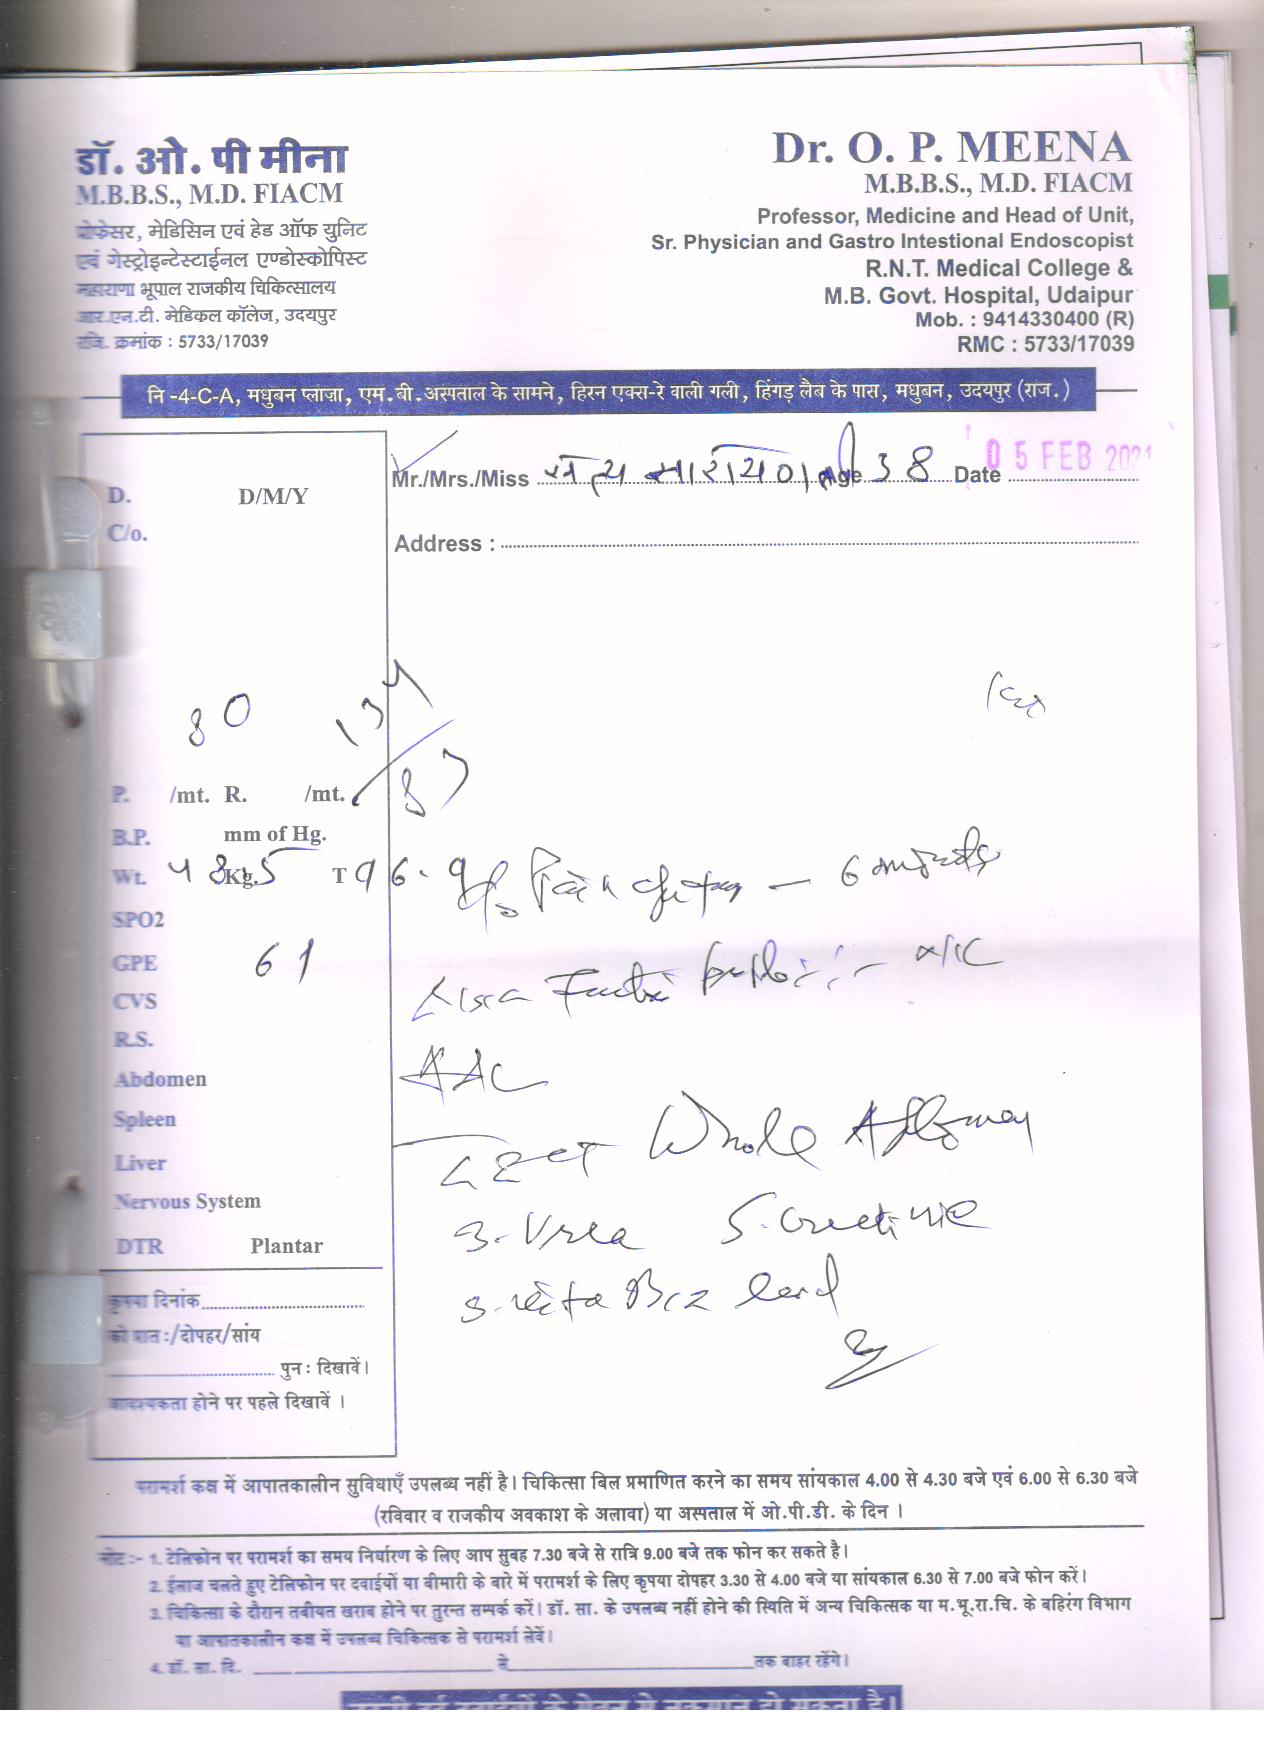 डॉ. ओ. पी मीना
M.B.B.S., M.D. FIACM
प्रोफेसर, मेडिसिन एवं हेड ऑफ युनिट
एवं गेस्ट्रोइन्टेस्टाईनल एण्डोस्कोपिस्ट
महाराणा भूपाल राजकीय चिकित्सालय
आर.एन.टी. मेडिकल कॉलेज, उदयपुर
रजि. क्रमांक : 5733/17039
Dr. O. P. MEENA
M.B.B.S., M.D. FIACM
Professor, Medicine and Head of Unit,
Sr. Physician and Gastro Intestional Endoscopist
R.N.T. Medical College &
M.B. Govt. Hospital, Udaipur
Mob. : 9414330400 (R)
RMC : 5733/17039
नि -4-C-A, मधुबन प्लाज़ा, एम.बी.अस्पताल के सामने, हिरन एक्स-रे वाली गली, हिंगड़ लैब के पास, मधुबन, उदयपुर (राज.)
Mr./Mrs./Miss सत्य नारायण जी Age 38 Date 05 FEB 2021
Address :
D. D/M/Y
C/o.
80 134/87
P. /mt. R. /mt.
B.P. mm of Hg.
Wt. 48.5 Kg. T 96.9
SPO2
GPE 61
CVS
R.S.
Abdomen
Spleen
Liver
Nervous System
DTR Plantar
कृपया दिनांक
को प्रात :/दोपहर/सांय
पुन : दिखावें।
आवश्यकता होने पर पहले दिखावें ।
6
CECT Whole Abdomen
S. Urea S. Creatinine
S. Vita B12 level
परामर्श कक्ष में आपातकालीन सुविधाएँ उपलब्ध नहीं है। चिकित्सा बिल प्रमाणित करने का समय सांयकाल 4.00 से 4.30 बजे एवं 6.00 से 6.30 बजे
(रविवार व राजकीय अवकाश के अलावा) या अस्पताल में ओ.पी.डी. के दिन ।
नोट :- 1. टेलिफोन पर परामर्श का समय निर्धारण के लिए आप सुबह 7.30 बजे से रात्रि 9.00 बजे तक फोन कर सकते है।
2. ईलाज चलते हुए टेलिफोन पर दवाईयों या बीमारी के बारे में परामर्श के लिए कृपया दोपहर 3.30 से 4.00 बजे या सांयकाल 6.30 से 7.00 बजे फोन करें।
3. चिकित्सा के दौरान तबीयत खराब होने पर तुरन्त सम्पर्क करें। डॉ. सा. के उपलब्ध नहीं होने की स्थिति में अन्य चिकित्सक या म.भू.रा.चि. के बहिरंग विभाग
या आपातकालीन कक्ष में उपलब्ध चिकित्सक से परामर्श लेवें।
4. डॉ. सा. दि. से तक बाहर रहेंगे।